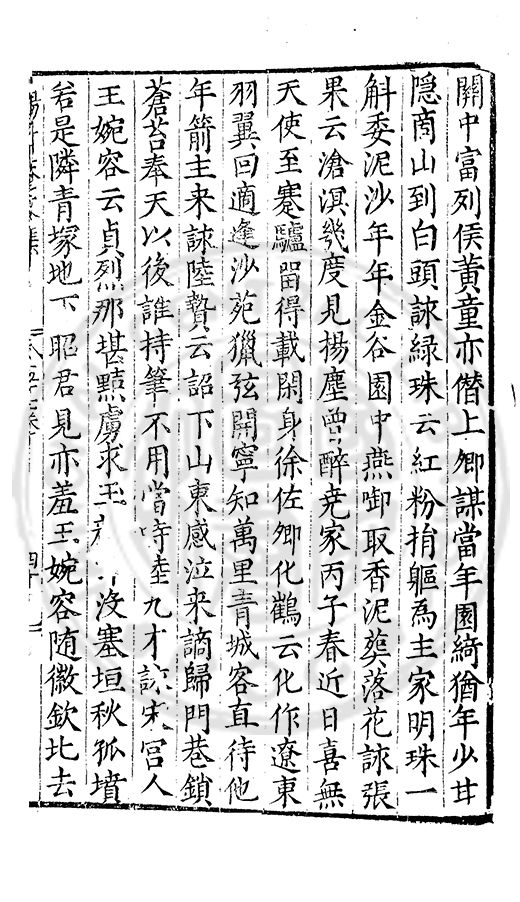 關中富列侯黃童亦僭上卿謀當年園綺猶年少甘
隱商山到白頭詠綠珠云紅粉捐軀為主家明珠一
斛委泥沙年年金谷園中燕啣取香泥葬落花詠張
果云滄溟幾度見揚塵曾醉堯家丙子春近日喜無
天使至蹇驢留得載閑身徐佐卿化鶴云化作遼東
羽翼回適逢沙苑獵弦開寧知萬里青城客直待他
年箭主来詠陸贄云詔下山東感泣来謫歸門巷鎖
蒼苔奉天以後誰持筆不用當時陸九才詠宋宮人
王婉容云貞烈那堪黠虜求玉 沒塞垣秋孤墳
若是隣青塚地下昭君見亦羞王婉容随徽欽北去